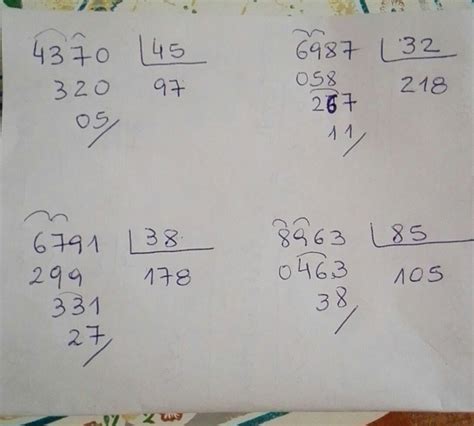 4370 45
320 97
05/
6987 32
058 218
267
11/
6791 38
299 178
331
27/
8963 85
0463 105
38/